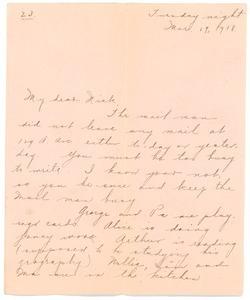 23.
Tuesday night
Mar. 19, 1918
My dear Dick
The mail man
did not leave any mail at
ave either to day or yester-
day You must be too busy
to write I know your not,
so you be sure and keep the
Mail man busy
George and Pa are play-
ing cards Alice is doing
fancy work Arthur is reading
(supposed to be studying his
geography) Nellie, and
Ma are in the kitchen